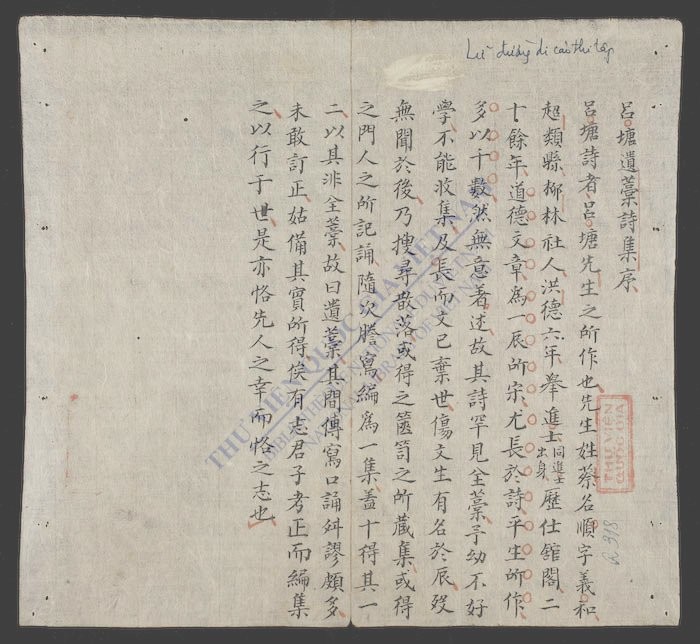 Lữ đường di cảo thi tập
呂塘遺藁詩集序
呂塘詩者呂塘先生之所作也先生姓蔡名順字義和
超類縣柳林社人洪德六年舉進士同進士出身歷仕舘閣二
十餘年道德文章爲一辰所宗尤長於詩平生所作
多以千數然無意著述故其詩罕見全藁予幼不好
學不能收集及長而文已棄世傷文生有名於辰殁
無聞於後乃搜尋散落或得之篋笥之所藏集或得
之門人之所記誦隨次謄寫編爲一集盖十得其一
二以其非全藁故曰遺藁其間傳寫口誦舛謬頗多
未敢訂正姑備其實所得俟有志君子考正而編集
之以行于世是亦恪先人之幸而恪之志也
THƯ VIỆN
QUỐC GIA
R.318
THƯ VIỆN QUỐC GIA VIỆT NAM
BIBLIOTHÈQUE NATIONALE DU VIETNAM
NATIONAL LIBRARY OF VIETNAM